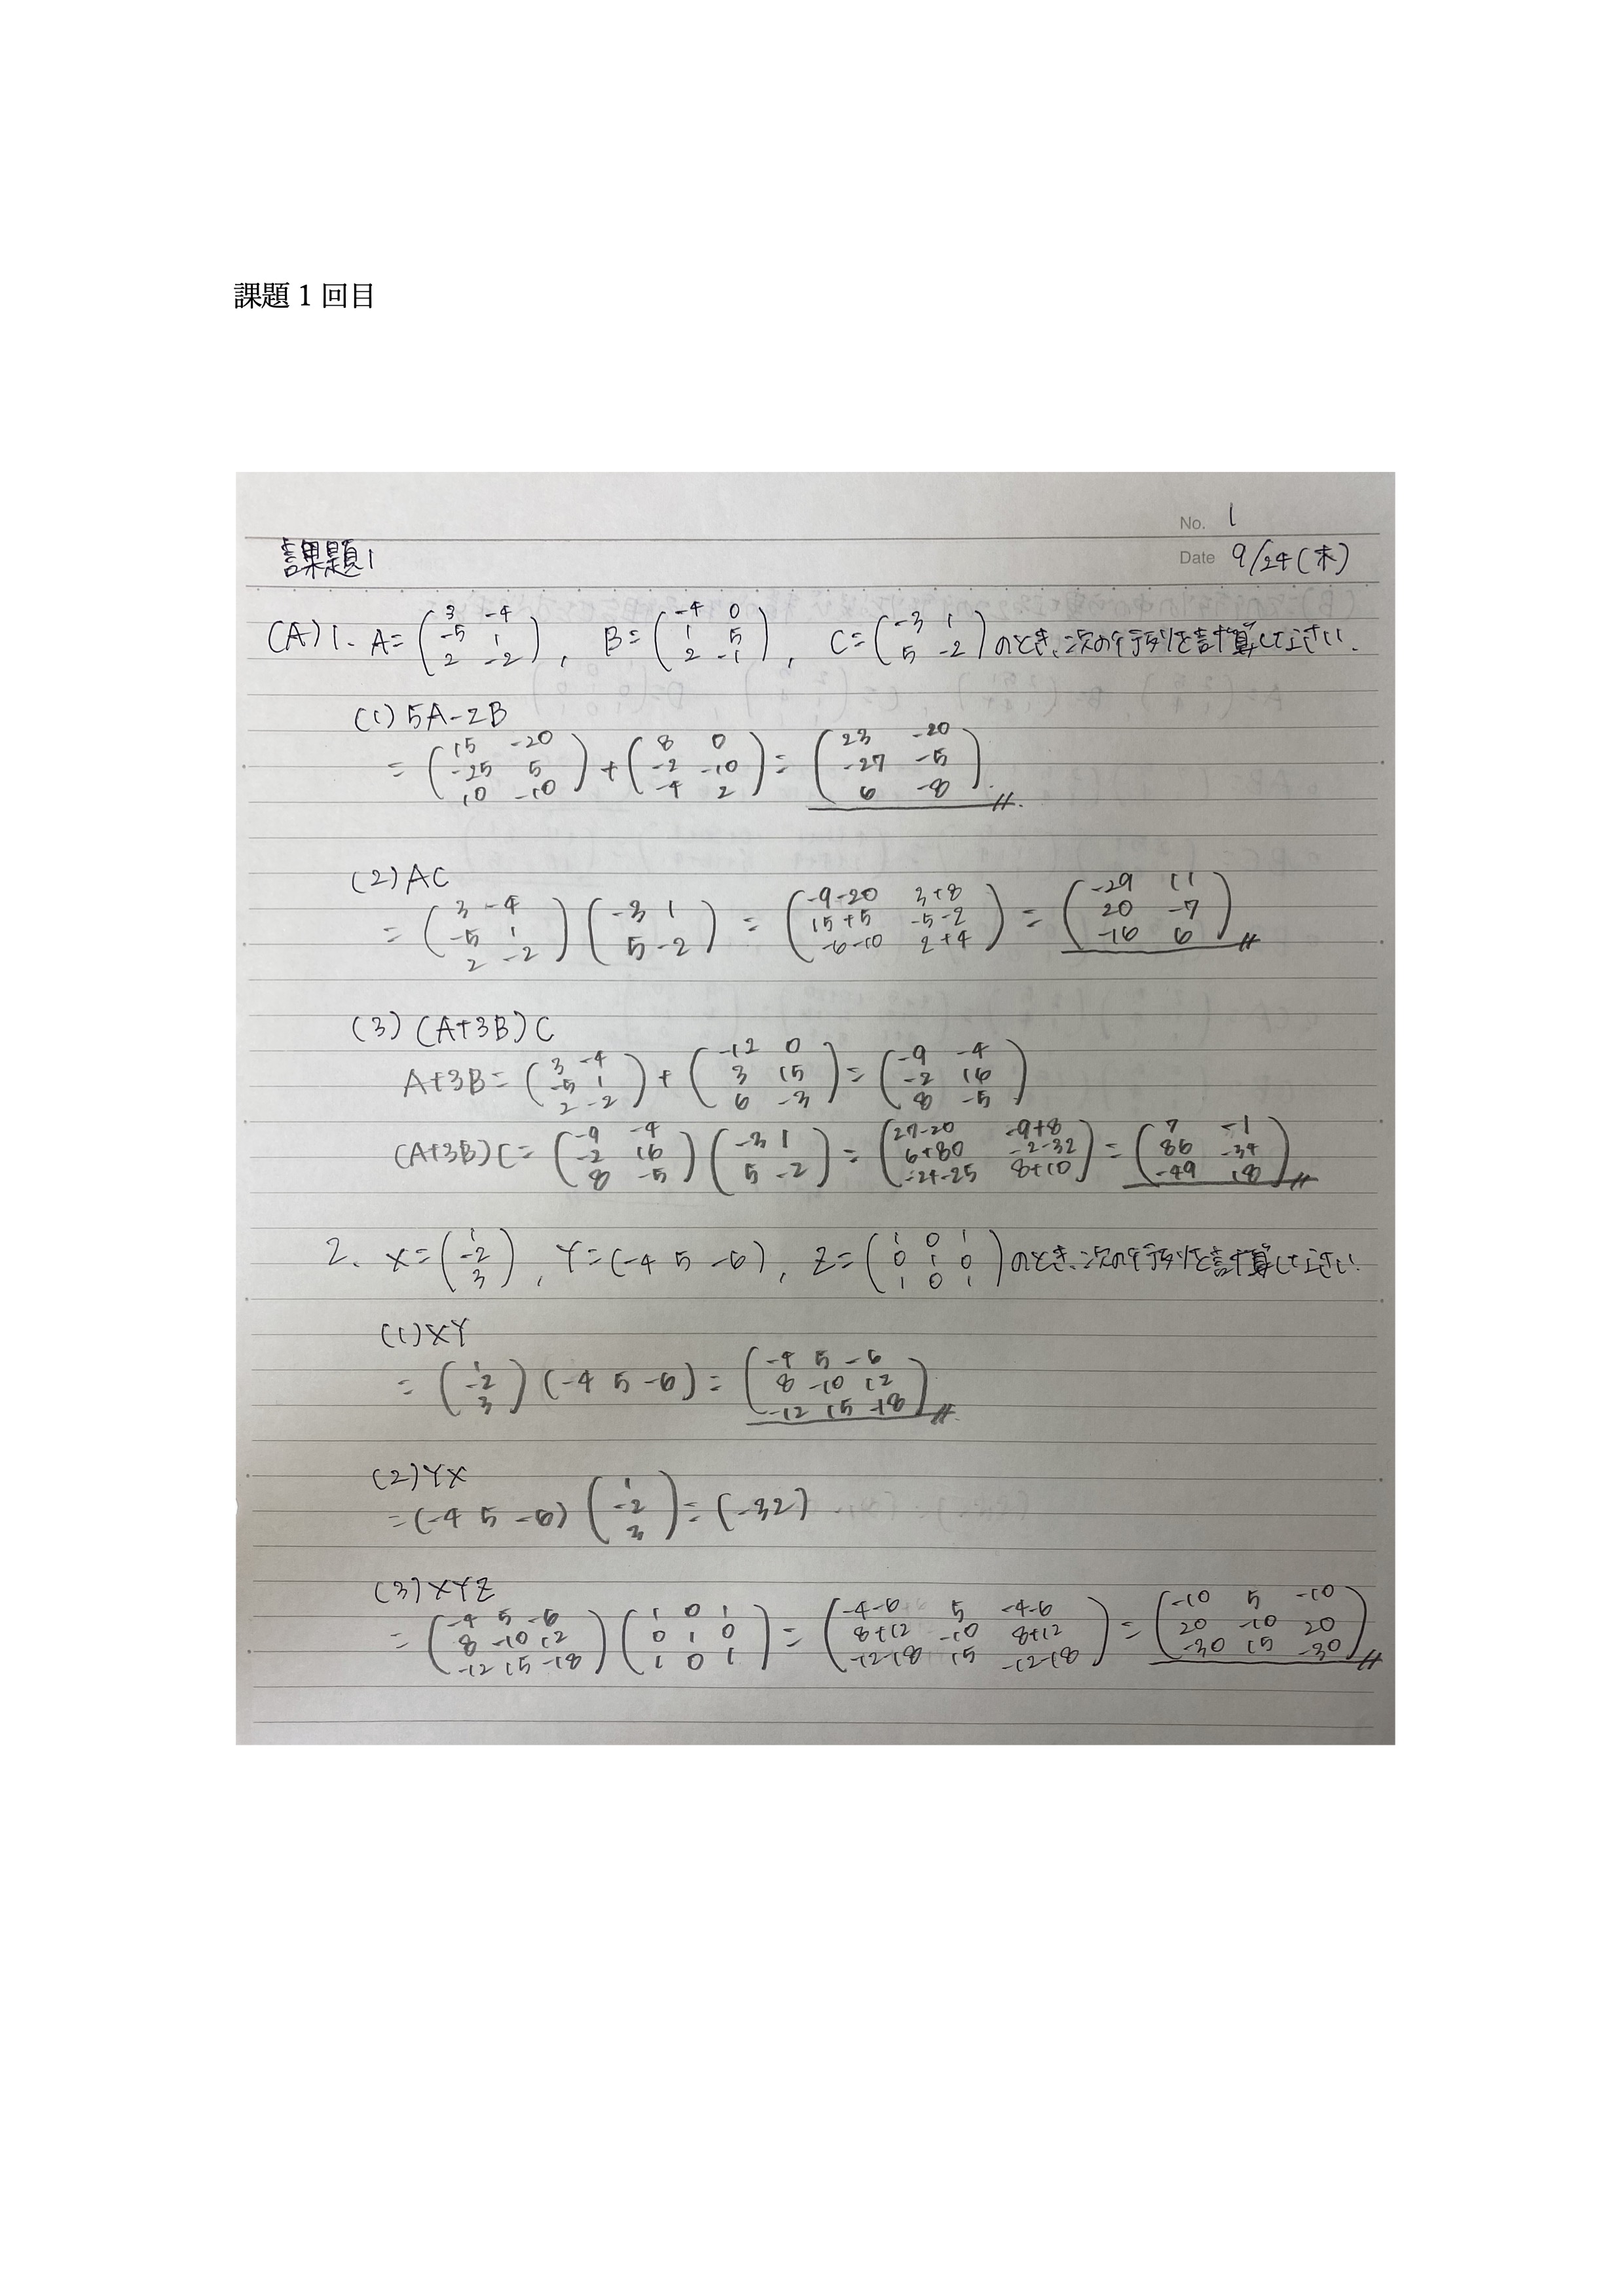 課題 1 回目
No. 1
課題1
Date 9/24(木)
(A) 1. A=(3 -4
-5 1
2 -2), B=(-4 0
1 5
2 -1), C=(-3 1
5 -2)のとき、次の行列を計算して下さい.
(1) 5A-2B
=(15 -20
-25 5
10 -10)+(8 0
-2 -10
-4 2)=(23 -20
-27 -5
6 -8)
(2) AC
=(3 -4
-5 1
2 -2)(-3 1
5 -2)=(-9-20 3+8
15+5 -5-2
-6-10 2+4)=(-29 11
20 -7
-16 6)
(3) (A+3B)C
A+3B=(3 -4
-5 1
2 -2)+(-12 0
3 15
6 -3)=(-9 -4
-2 16
8 -5)
(A+3B)C=(-9 -4
-2 16
8 -5)(-3 1
5 -2)=(27-20 -9+8
6+80 -2-32
-24-25 8+10)=(7 -1
86 -34
-49 18)
2. X=(1
-2
3), Y=(-4 5 -6), Z=(1 0 1
0 1 0
1 0 1)のとき、次の行列を計算して下さい.
(1) XY
=(1
-2
3)(-4 5 -6)=(-4 5 -6
8 -10 12
-12 15 -18)
(2) YX
=(-4 5 -6)(1
-2
3)=(-32)
(3) XYZ
=(-4 5 -6
8 -10 12
-12 15 -18)(1 0 1
0 1 0
1 0 1)=(-4-6 5 -4-6
8+12 -10 8+12
-12-18 15 -12-18)=(-10 5 -10
20 -10 20
-30 15 -30)